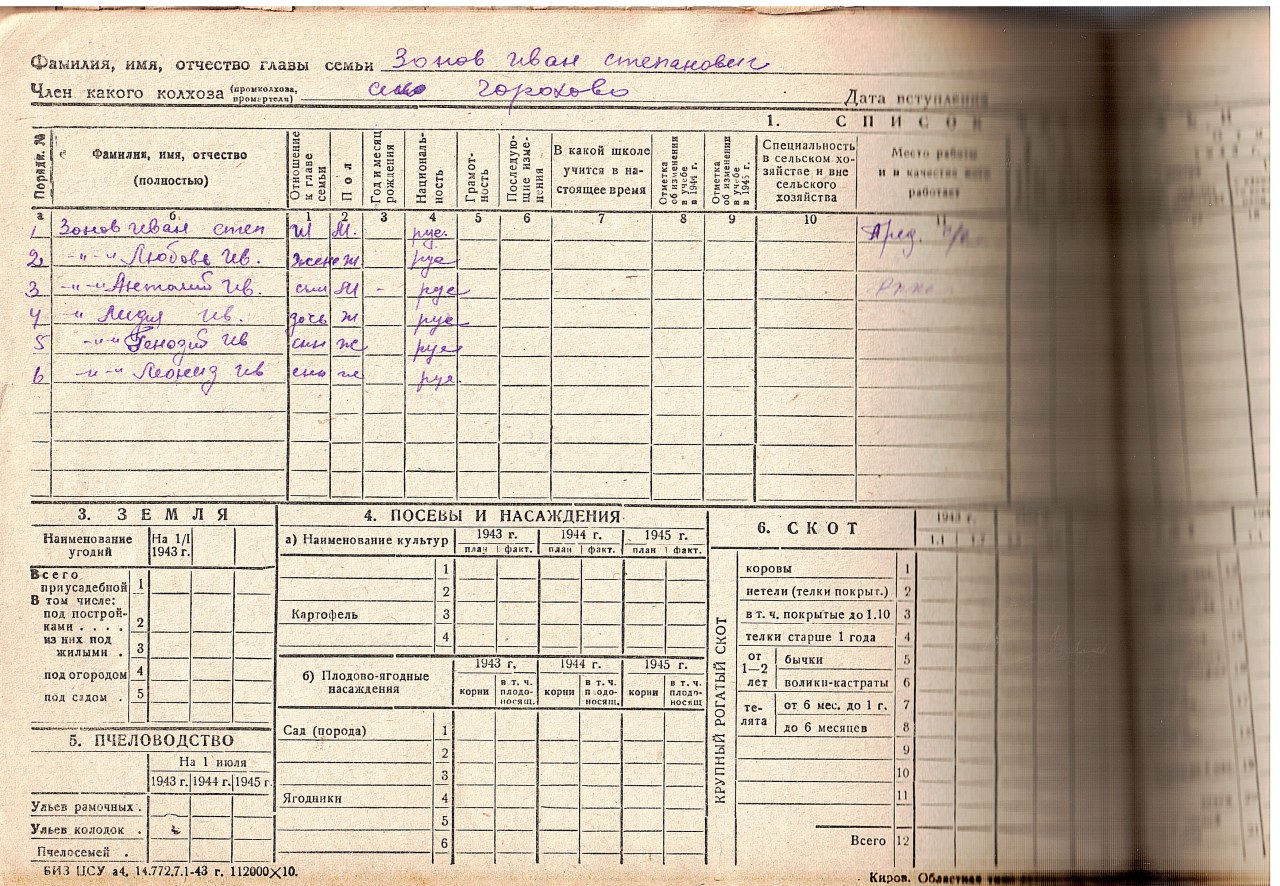 Фамилия, имя, отчество главы семьи Зонов Иван Степанович
Член какого колхоза (промколхоза, промартели) село Горохово Дата вступления
1. СПИСОК
Порядк. № Фамилия, имя, отчество (полностью) Отношение к главе семьи Пол Год и месяц рождения Националь-ность Грамот-ность Последую-щие изме-нения В какой школе учится в на-стоящее время Отметка об изменении в учебе в 1944 г. Отметка об изменении в учебе в 1945 г. Специальность в сельском хо-зяйстве и вне сельского хозяйства Место работы и в качестве кого работает
а б. 1 2 3 4 5 6 7 8 9 10 11
1 Зонов Иван Степ М. рус. Пред. с/с
2 -"-"- Любовь Ив. жена ж рус
3 -"-" Анатолий Ив. сын М - рус
4 -" Лидия Ив. дочь ж рус
5 -"-" Генадий Ив сын ж рус
6 -"-" Леонид Ив сын ж рус.
3. ЗЕМЛЯ
Наименование угодий На 1/I 1943 г.
Всего приусадебной 1
В том числе:
под построй-ками . . . . 2
из них под жилыми . 3
под огородом 4
под садом . 5
5. ПЧЕЛОВОДСТВО
На 1 июля
1943 г. 1944 г. 1945 г.
Ульев рамочных .
Ульев колодок .
Пчелосемей .
4. ПОСЕВЫ И НАСАЖДЕНИЯ
а) Наименование культур 1943 г. 1944 г. 1945 г.
план факт. план факт. план факт.
1
2
Картофель 3
4
б) Плодово-ягодные насаждения 1943 г. 1944 г. 1945 г.
корни в т. ч. плодо-носящ. корни в т. ч. плодо-носящ. корни в т. ч. плодо-носящ
Сад (порода) 1
2
3
Ягодники 4
5
6
6. СКОТ 1943 г.
КРУПНЫЙ РОГАТЫЙ СКОТ
коровы 1
нетели (телки покрыт.) 2
в т. ч. покрытые до 1.10 3
телки старше 1 года 4
от 1—2 лет бычки 5
волики-кастраты 6
те-лята от 6 мес. до 1 г. 7
до 6 месяцев 8
9
10
11
Всего 12
БИЗ ЦСУ а4, 14.772.7.1-43 г. 112000×10.
Киров. Областная